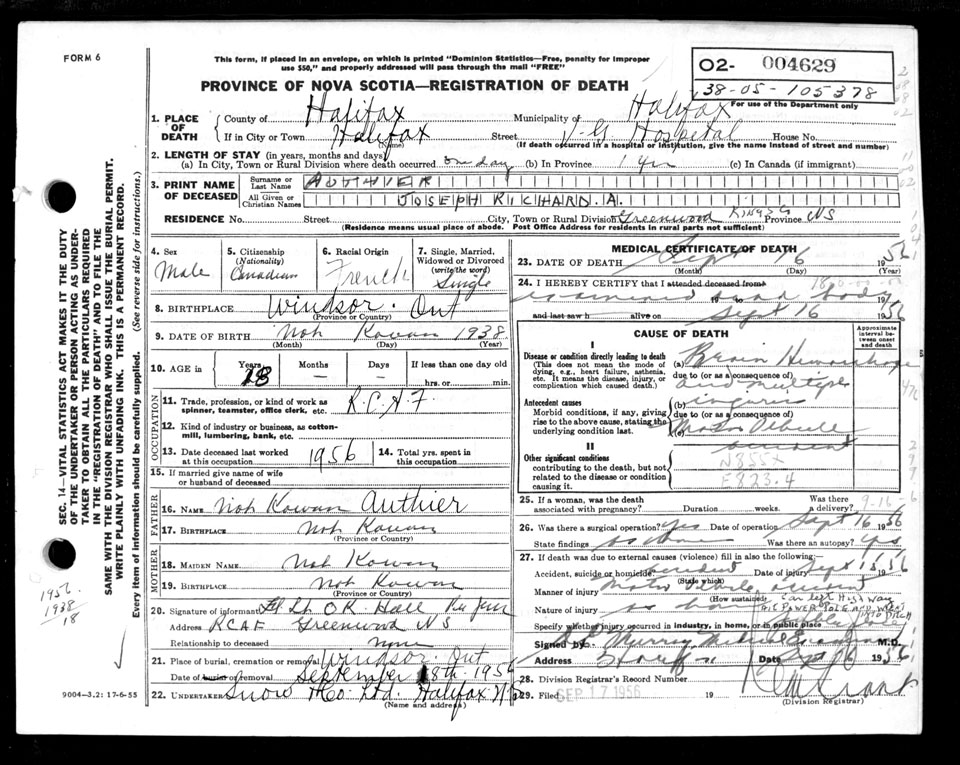 FORM 6
This form, if placed in an envelope, on which is printed "Dominion Statistics—Free, penalty for improper
use $50," and properly addressed will pass through the mail "FREE"
02- 004629
38-05-105378
For use of the Department only
PROVINCE OF NOVA SCOTIA—REGISTRATION OF DEATH
1. PLACE OF DEATH
County of Halifax Municipality of Halifax
If in City or Town Halifax Street V-G Hospital House No.
(Name) (If death occurred in a hospital or institution, give the name instead of street and number)
2. LENGTH OF STAY (in years, months and days)
(a) In City, Town or Rural Division where death occurred one day (b) In Province 1 yr (c) In Canada (if immigrant)
3. PRINT NAME OF DECEASED
Surname or Last Name AUTHIER
All Given or Christian Names JOSEPH RICHARD. A.
RESIDENCE No. Street City, Town or Rural Division Greenwood KINGS Province NS
(Residence means usual place of abode. Post Office Address for residents in rural parts not sufficient)
4. Sex Male
5. Citizenship (Nationality) Canadian
6. Racial Origin French
7. Single, Married, Widowed or Divorced (write the word) Single
8. BIRTHPLACE Windsor. Ont
(Province or Country)
9. DATE OF BIRTH Not Kowan 1938
(Month) (Day) (Year)
10. AGE Years 18 Months — Days — If less than one day old
hrs. or min.
OCCUPATION
11. Trade, profession, or kind of work as spinner, teamster, office clerk, etc. R.C.A.F.
12. Kind of industry or business, as cotton-mill, lumbering, bank, etc.
13. Date deceased last worked at this occupation 1956
14. Total yrs. spent in this occupation
15. If married give name of wife or husband of deceased
FATHER
16. NAME Not Kowan Authier
17. BIRTHPLACE Not Kowan
(Province or Country)
MOTHER
18. MAIDEN NAME Not Kowan
19. BIRTHPLACE Not Kowan
(Province or Country)
20. Signature of informant Fl Lt O K Hall
Address RCAF Greenwood NS
Relationship to deceased none
21. Place of burial, cremation or removal Windsor. Ont
Date of burial or removal September 18th. 1956
22. UNDERTAKER Snow & Co Ltd. Halifax N.S.
(Name and address)
MEDICAL CERTIFICATE OF DEATH
23. DATE OF DEATH Sept 16 1956
(Month) (Day) (Year)
24. I HEREBY CERTIFY that I attended deceased from
examined dead body
and last saw h alive on Sept 16 1956
CAUSE OF DEATH
Approximate interval between onset and death
I
Disease or condition directly leading to death
(This does not mean the mode of dying, e.g., heart failure, asthenia, etc. It means the disease, injury, or complication which caused death.)
(a) Brain Hemorrhage
due to (or as a consequence of)
and multiple
Antecedent causes
Morbid conditions, if any, giving rise to the above cause, stating the underlying condition last.
(b) injuries
due to (or as a consequence of)
(c) Motor Vehicle
accident
II
Other significant conditions
contributing to the death, but not related to the disease or condition causing it.
N855X
E823.4
25. If a woman, was the death associated with pregnancy? Duration weeks. Was there a delivery?
9-16-6
26. Was there surgical operation? yes Date of operation Sept 16 1956
State findings as above Was there an autopsy? yes
27. If death was due to external causes (violence) fill in also the following:
Accident, suicide or homicide? accident Date of injury Sept 15 1956
(State which)
Manner of injury Motor Vehicle accident
(How sustained) Car left Highway
Nature of injury as above HIT POWER POLE AND WENT INTO DITCH
Specify whether injury occurred in industry, in home, or in public place
Signed by Murray Medical Examiner M.D.
Address Halifax Date Sept 16 1956
28. Division Registrar's Record Number
29. Filed SEP 17 1956 19
(Division Registrar)
SEC. 14—VITAL STATISTICS ACT MAKES IT THE DUTY
OF THE UNDERTAKER OR PERSON ACTING AS UNDER-
TAKER TO OBTAIN ALL THE PARTICULARS REQUIRED
IN THE "REGISTRATION OF DEATH" AND TO FILE THE
SAME WITH THE DIVISION REGISTRAR WHO SHALL ISSUE THE BURIAL PERMIT.
WRITE PLAINLY WITH UNFADING INK. THIS IS A PERMANENT RECORD.
Every item of information should be carefully supplied. (See reverse side for instructions.)
1956
1938
18
9004-3.2: 17-6-55